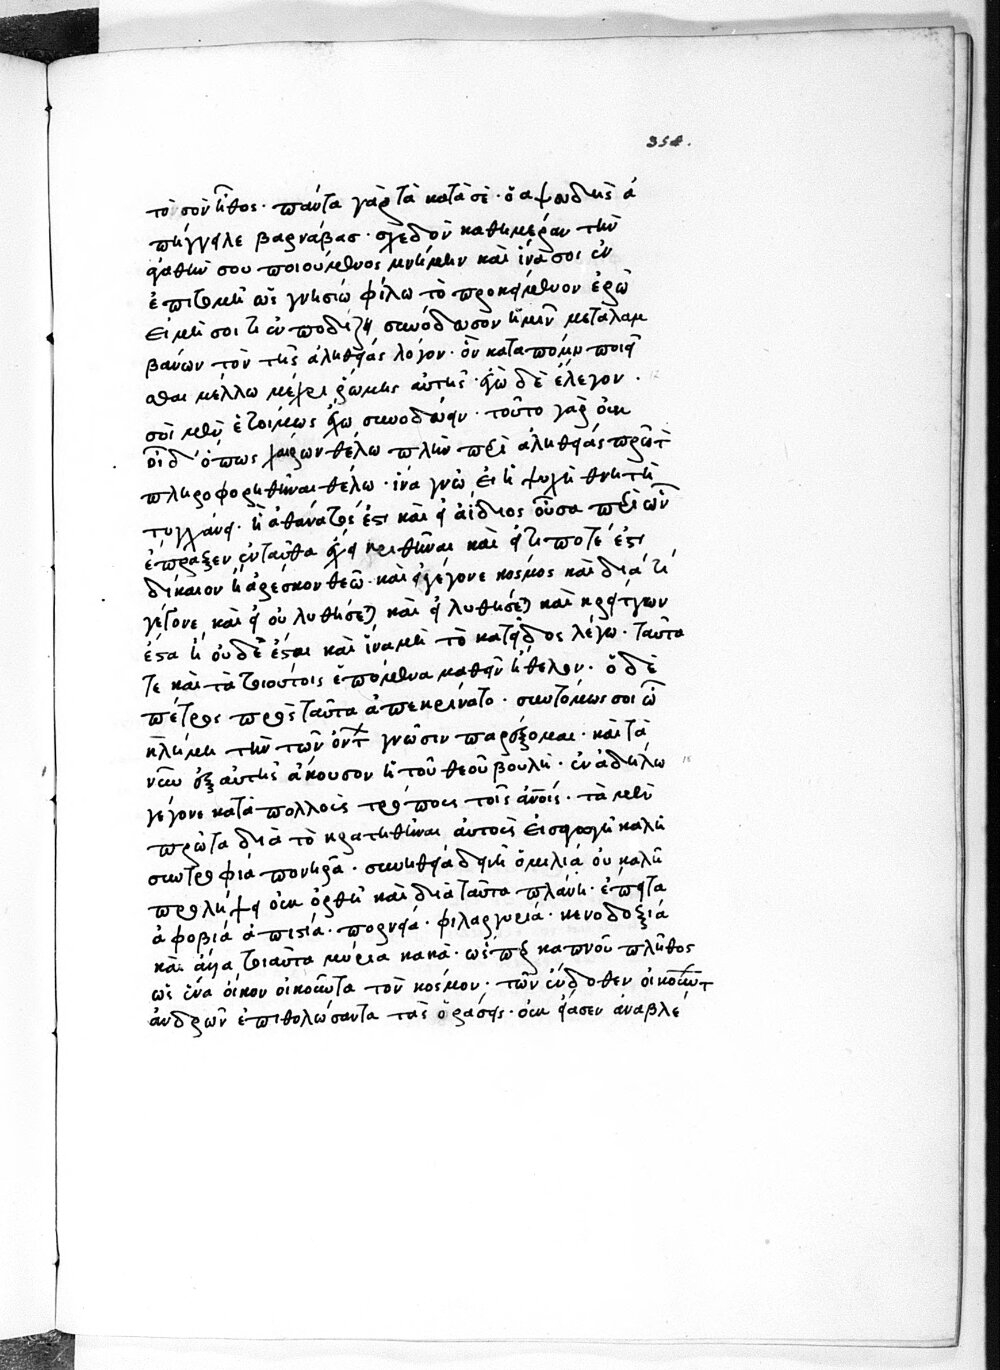 354.
τὸ σὸν ἦθος· πάντα γὰρ τὰ κατὰ σὲ· ὁ ἀψευδὴς ἀ
πήγγειλε βαρνάβας· σχεδὸν καθημέραν τὴν
ἀγαθήν σου ποιούμενος μνήμην καὶ ἵνα σοι ἐν
ἐπιτομῇ ὡς γνησίω φίλω τὸ προκείμενον ἐρῶ
εἰ μή σοι τι ἐν ποδίζῃ συνόδευσον ἡμῖν μεταλαμ
βάνων τὸν τῆς ἀληθείας λόγον· ὃν κατὰ πόλιν ποιεῖ
σθαι μέλλω μέχρι ῥώμης αὐτῆς· ἐγὼ δὲ ἔλεγον·
σοὶ μὲν ἑτοίμως ἔχω συνοδεύειν· τοῦτο γὰρ οὐκ
οἶδ' ὅπως χαίρων θέλω πλὴν περὶ ἀληθείας πρῶτ
πληροφορηθῆναι θέλω· ἵνα γνῶ εἰ ἡ ψυχὴ θνητὴ
τυγχάνει· ἢ ἀθάνατός ἐστι καὶ εἰ ἀίδιος οὖσα περὶ ὧν
ἔπραξεν ἐνταῦθα ἔχει κριθῆναι καὶ εἴ τι ποτέ ἐστι
δίκαιον ἢ ἀρέσκον θεῶ· καὶ εἰ γέγονε κόσμος καὶ διὰ τί
γέγονε καὶ εἰ οὐ λυθήσεται καὶ εἰ λυθήσεται καὶ κρείττων
ἔσται ἢ οὐδὲ ἔσται καὶ ἵνα μὴ τὸ κατ' εἶδος λέγω· ταῦτά
τε καὶ τὰ τοιούτοις ἑπόμενα μαθεῖν ἤθελον· ὁ δὲ
πέτρος πρὸς ταῦτα ἀπεκρίνατο· συντόμως σοι ὦ
κλήμη τὴν τῶν ὄντ γνῶσιν παρέξομαι· καὶ τὰ
νῦν ἐξ αὐτῆς ἄκουσον ἡ τοῦ θεοῦ βουλὴ· ἐν ἀδήλω
γέγονε κατὰ πολλοὺς τρόπους τοῖς ἀνοις· τὰ μὲν
πρῶτα διὰ τὸ κρατηθῆναι αὐτοὺς εἰσαγωγὴ κακὴ
συντροφία πονηρᾶ· συνηθεία δεινῆ ὁμιλία οὐ καλῆ
προλήψει οὐκ ὀρθῇ καὶ διὰ ταῦτα πλάνη· ἔπειτα
ἀφοβία ἀπιστία· πορνεία· φιλαργυρία· κενοδοξία
καὶ ἄλλα τοιαῦτα μύρια κακὰ· ὥσπερ καπνοῦ πλῆθος
ὡς ἕνα οἶκον οἰκοῦντα τὸν κόσμον· τῶν ἔνδοθεν οἰκούντ
ἀνδρῶν ἐπιθολώσαντα τὰς ὁράσεις· οὐκ εἴασεν ἀναβλέ